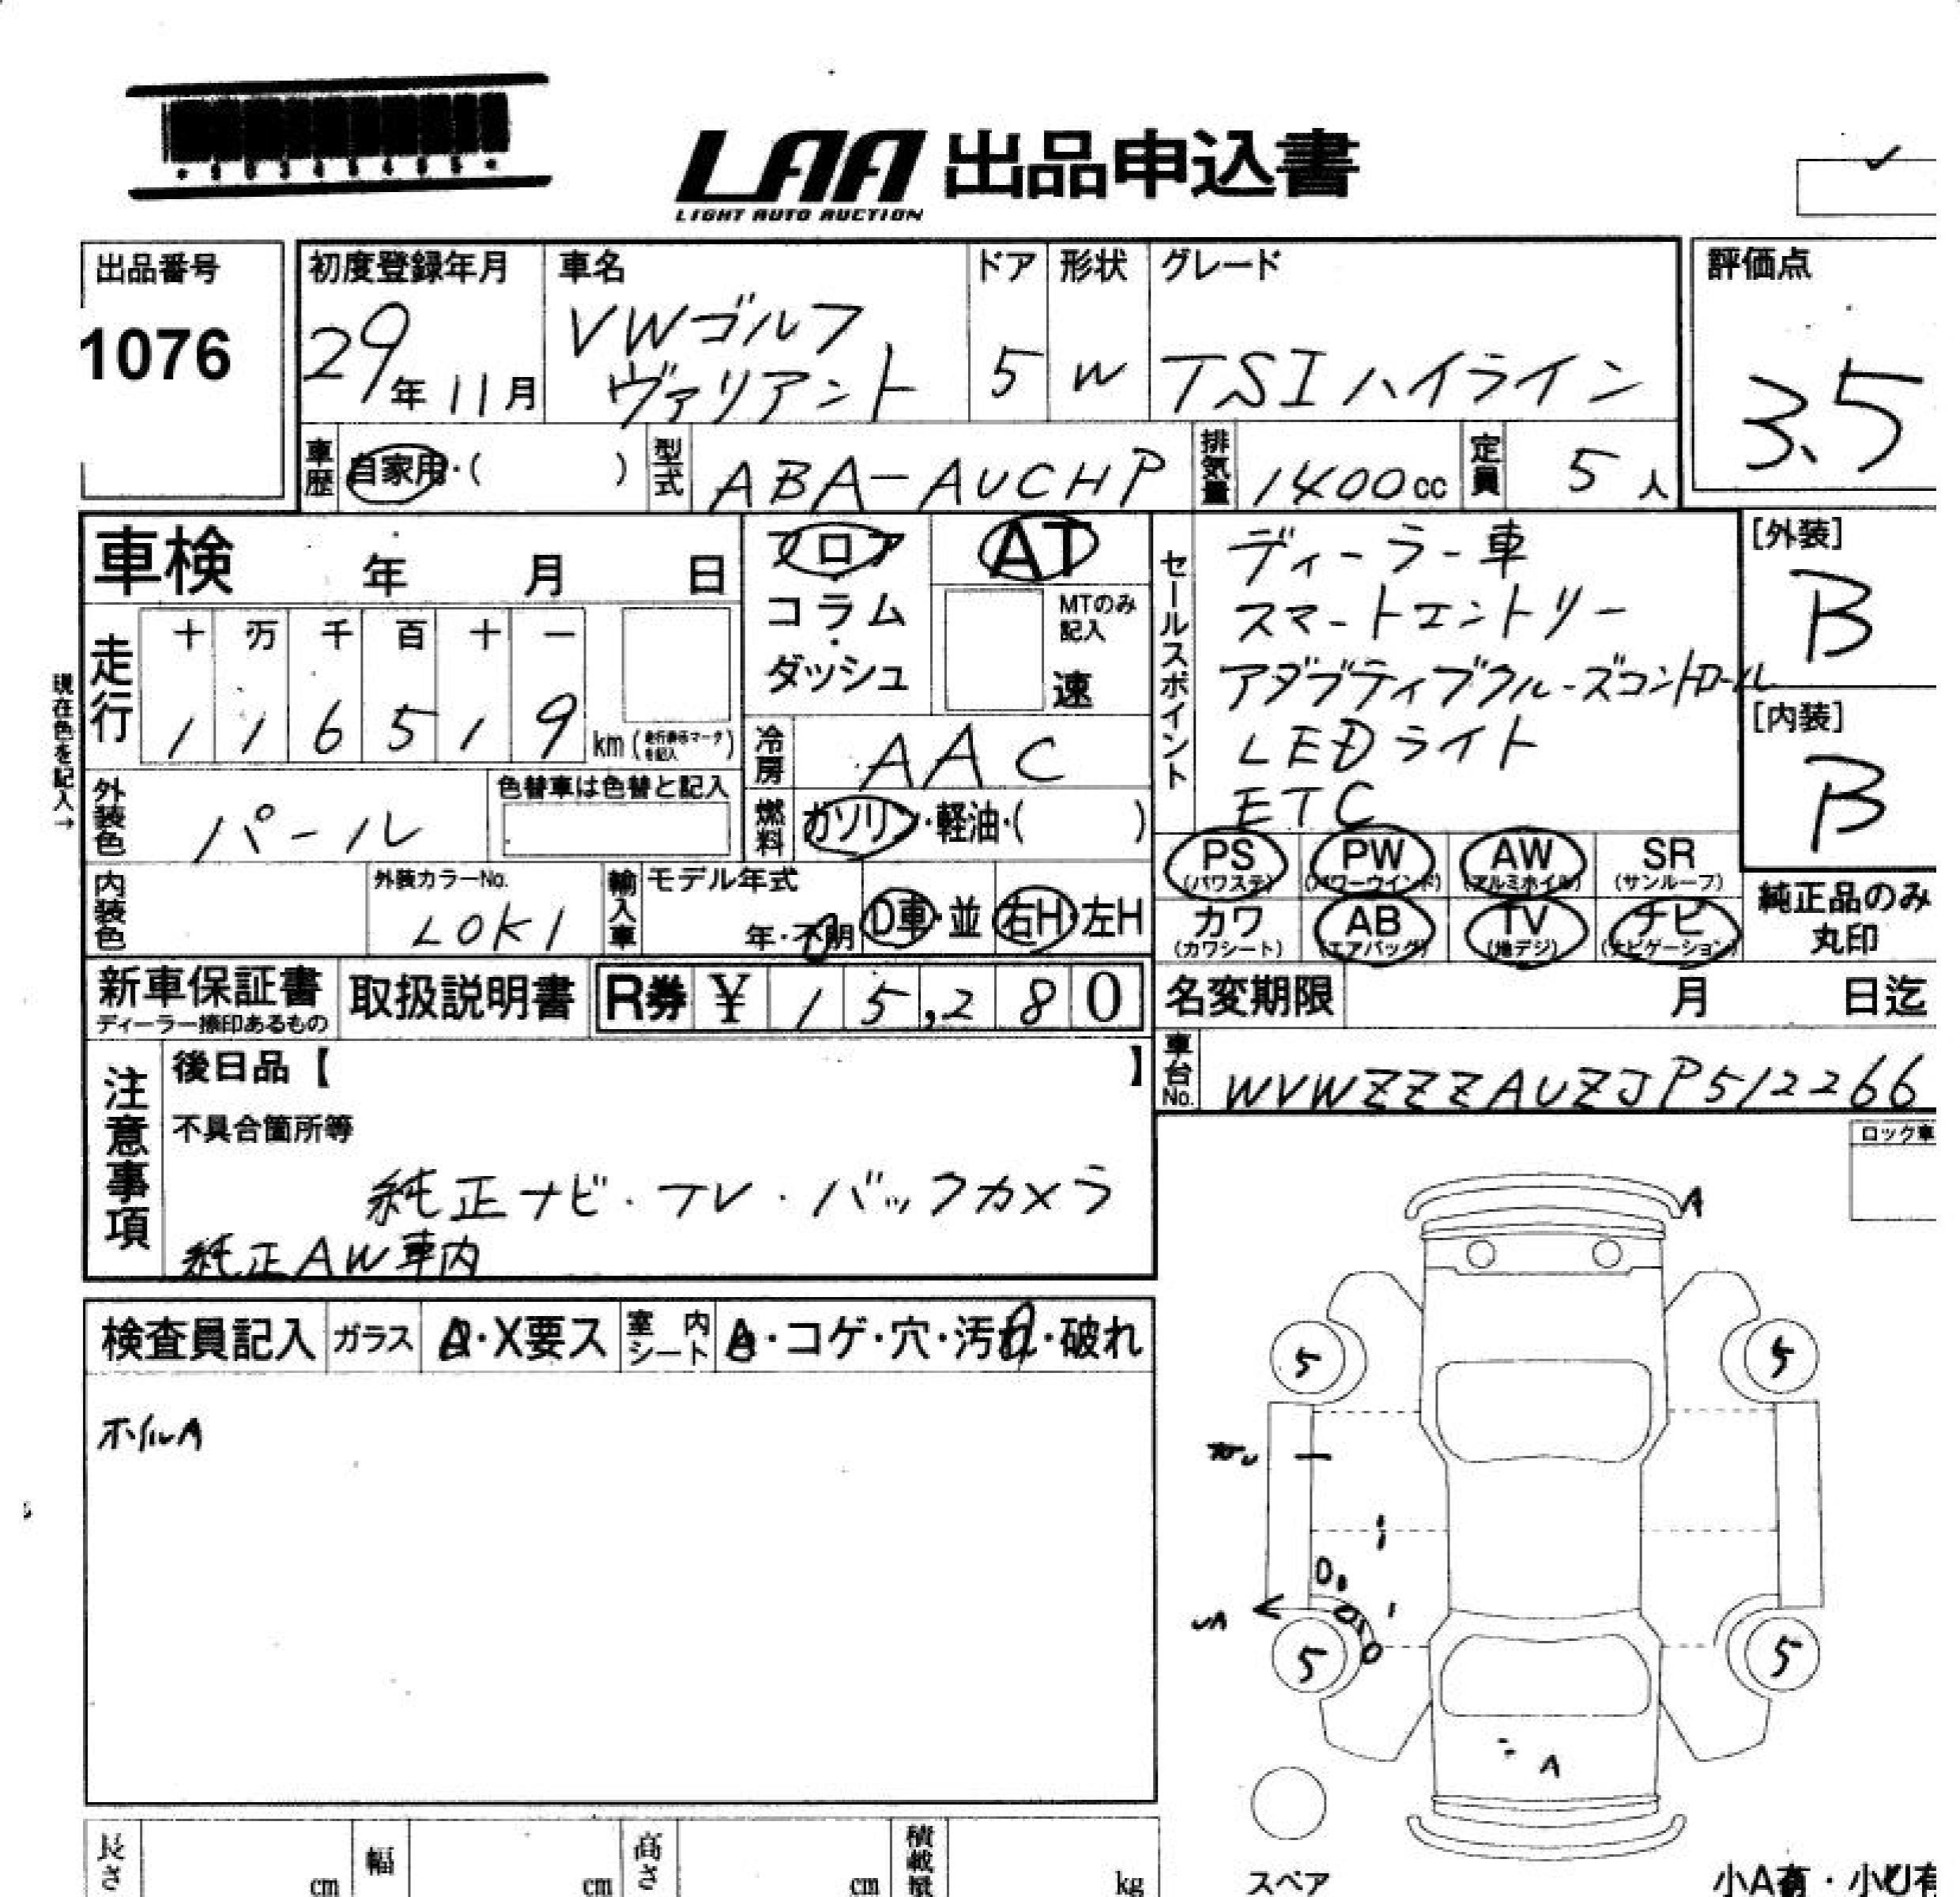 LAA 出品申込書
LIGHT AUTO AUCTION
出品番号
1076
初度登録年月
29年11月
車名
VWゴルフ
ヴァリアント
ドア
5
形状
W
グレード
TSIハイライン
評価点
3.5
車歴 自家用・( )
型式 ABA-AUCHP
排気量 1400cc
定員 5人
車検 年 月 日
フロア
コラム
・
ダッシュ
AT
MTのみ
記入
速
セールスポイント
ディーラー車
スマートエントリー
アダプティブクルーズコントロール
LEDライト
ETC
[外装]
B
[内装]
B
現在色を記入→
走行
十 万 千 百 十 一
1 1 6 5 1 9 km(走行表示マークを記入)
冷房 AAC
燃料 ガソリン・軽油・( )
外装色 パール
色替車は色替と記入
内装色
外装カラーNo.
L0K1
輸入車
モデル年式
年・不明
D車・並 右H・左H
PS (パワステ)
PW (パワーウインド)
AW (アルミホイル)
SR (サンルーフ)
カワ (カワシート)
AB (エアバッグ)
TV (地デジ)
ナビ (ナビゲーション)
純正品のみ
丸印
新車保証書
ディーラー捺印あるもの
取扱説明書
R券 ¥ 15,280
名変期限 月 日迄
車台No. WVWZZZAUZJP512266
注意事項
後日品【 】
不具合箇所等
純正ナビ・TV・バックカメラ
純正AW車内
ロック車
A
検査員記入 ガラス A・X要ス 室内シート A・コゲ・穴・汚れ・破れ
ホイルA
5 5
5 5
A
スペア
長さ cm 幅 cm 高さ cm 積載量 kg
小A有・小U有